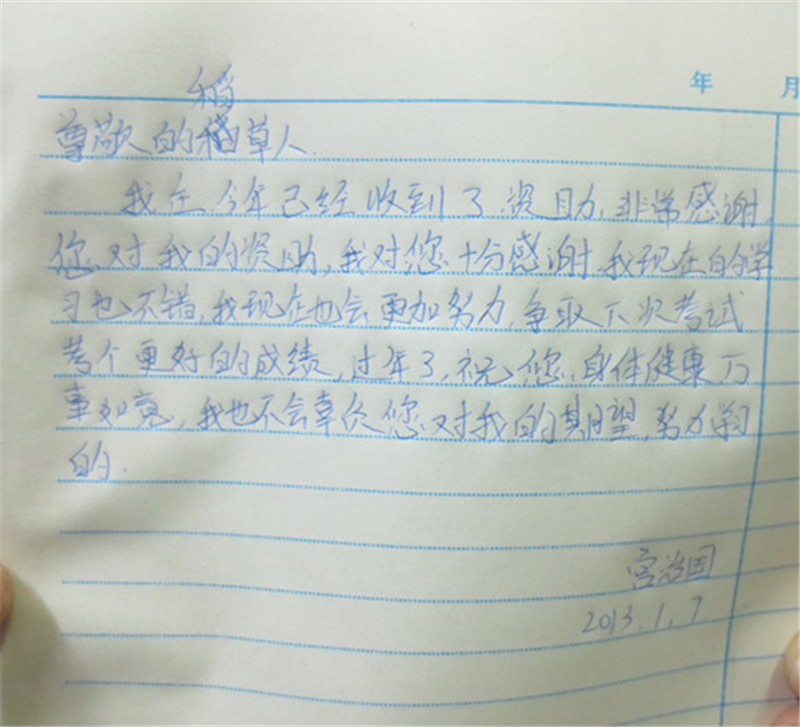 年 月
稻
尊敬的稻草人.
我在今年已经收到了资助,非常感谢
您对我的资助,我对您十分感谢.我现在的学
习也不错,我现在也会更加努力,争取下次考试
考个更好的成绩,过年了,祝您身体健康万
事如意,我也不会辜负您对我的期望,努力学习
的.
宫治国
2013.1.7